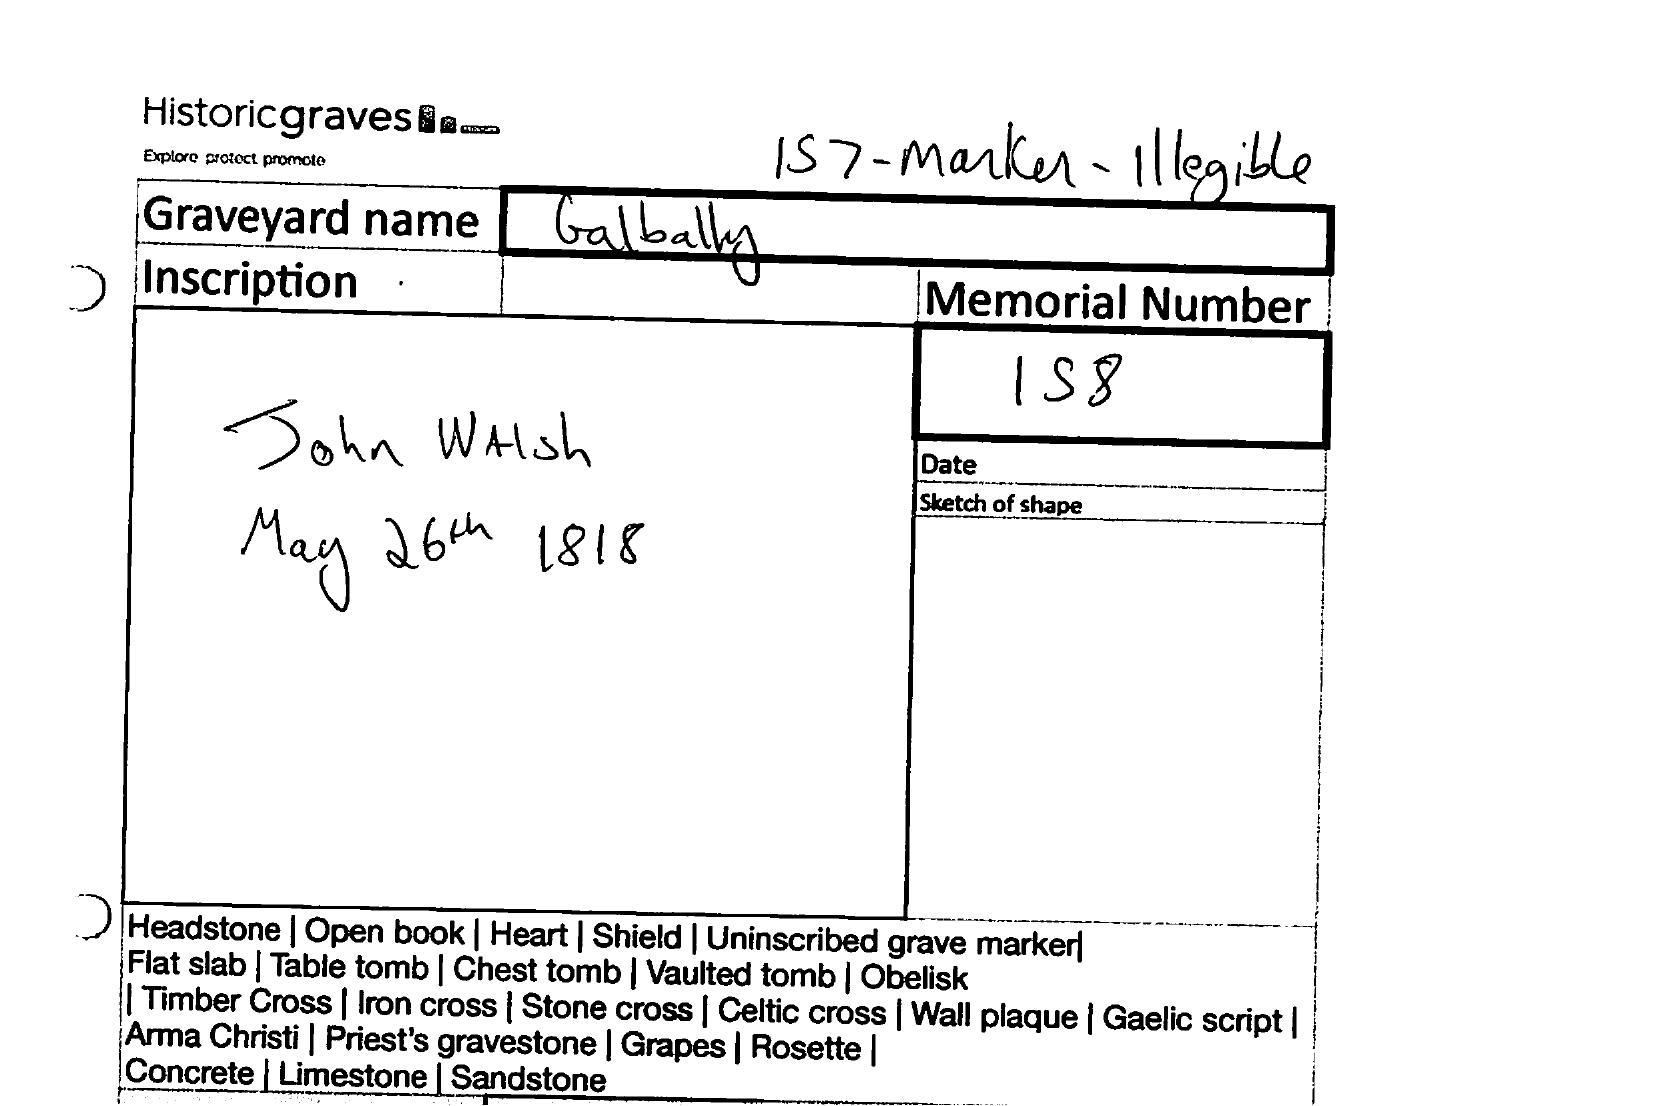 Historicgraves
Explore protect promote
157-Marker-Illegible
Graveyard name Galbally
Inscription
Memorial Number
158
John WAlsh
May 26th 1818
Date
Sketch of shape
Headstone | Open book | Heart | Shield | Uninscribed grave marker|
Flat slab | Table tomb | Chest tomb | Vaulted tomb | Obelisk
| Timber Cross | Iron cross | Stone cross | Celtic cross | Wall plaque | Gaelic script |
Arma Christi | Priest's gravestone | Grapes | Rosette |
Concrete | Limestone | Sandstone